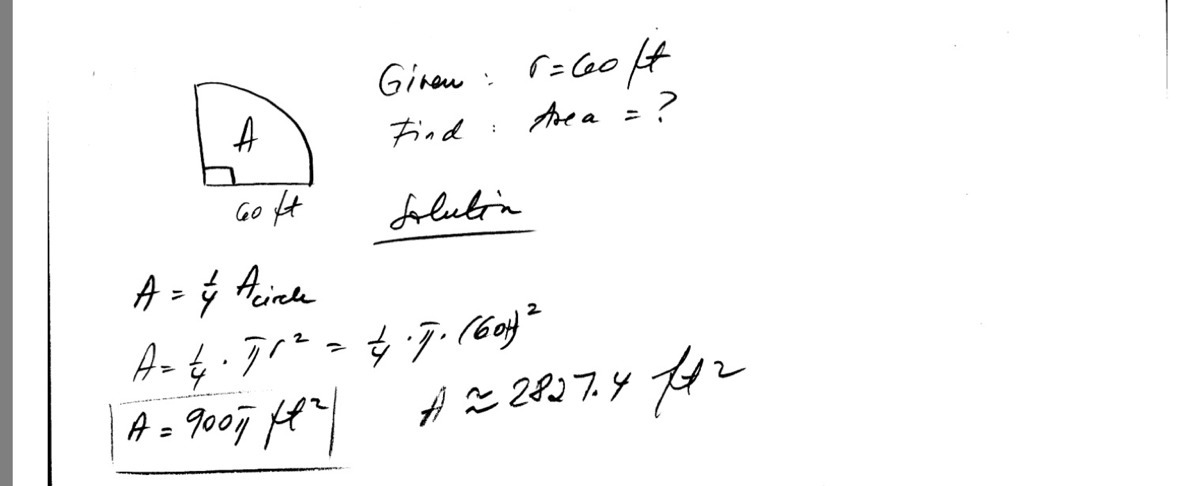 Given : r = 60 ft
Find : Area = ?
A
60 ft
Solution
A = 1/4 A circle
A = 1/4 · πr² = 1/4 · π · (60ft)²
A = 900π ft²
A ≈ 2827.4 ft²